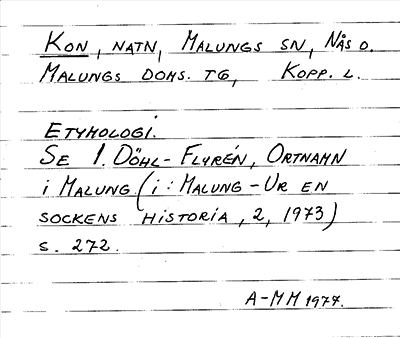 KON, NATN, MALUNGS SN, NÅS O.
MALUNGS DOMS. TG, KOPP. L.
ETYMOLOGI.
SE I. DÖHL-FLYRÉN, ORTNAMN
i MALUNG (i: MALUNG-UR EN
SOCKENS HISTORIA, 2, 1973)
S. 272.
A-MM 1977.